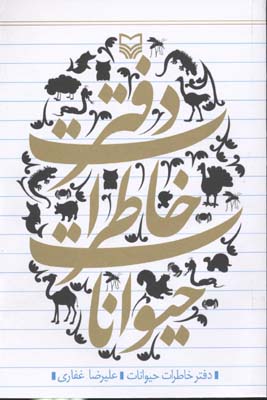 دفتر
خاطرات
حیوانات
دفتر خاطرات حیوانات علیرضا غفاری